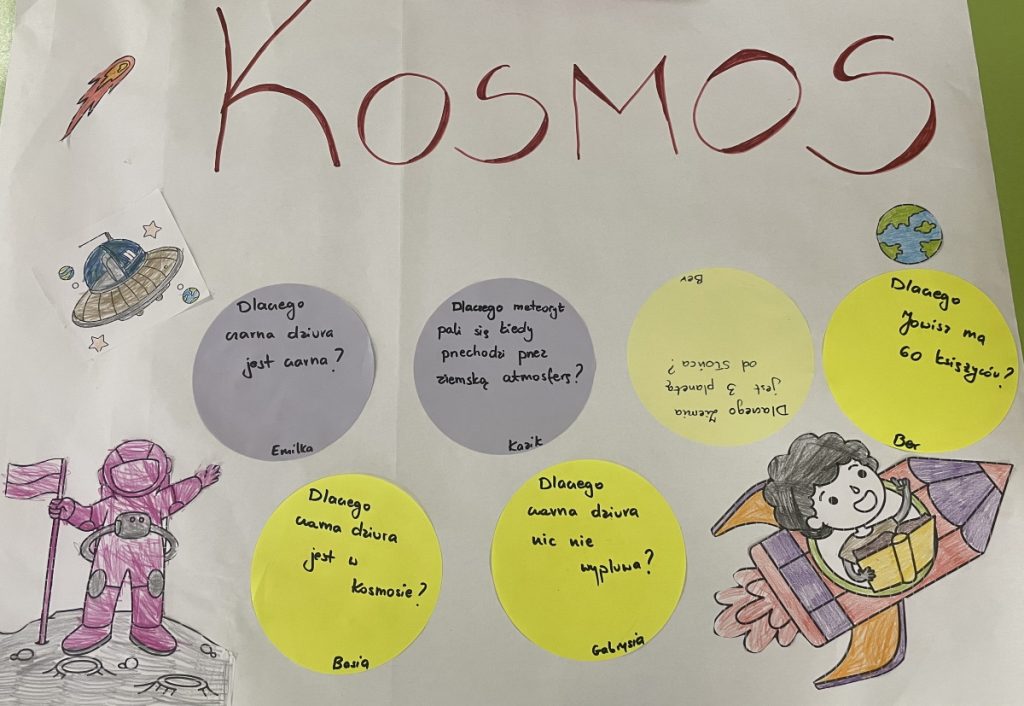 KOSMOS
Dlaczego
czarna dziura
jest czarna?
Emilka
Dlaczego meteoryt
pali się kiedy
przechodzi przez
ziemską atmosferę?
Kazik
Dlaczego Ziemia
jest 3 planetą
od Słońca?
Ber
Dlaczego
Jowisz ma
60 księżyców?
Ber
Dlaczego
czarna dziura
jest w
Kosmosie?
Basia
Dlaczego
czarna dziura
nic nie
wypluwa?
Gabrysia